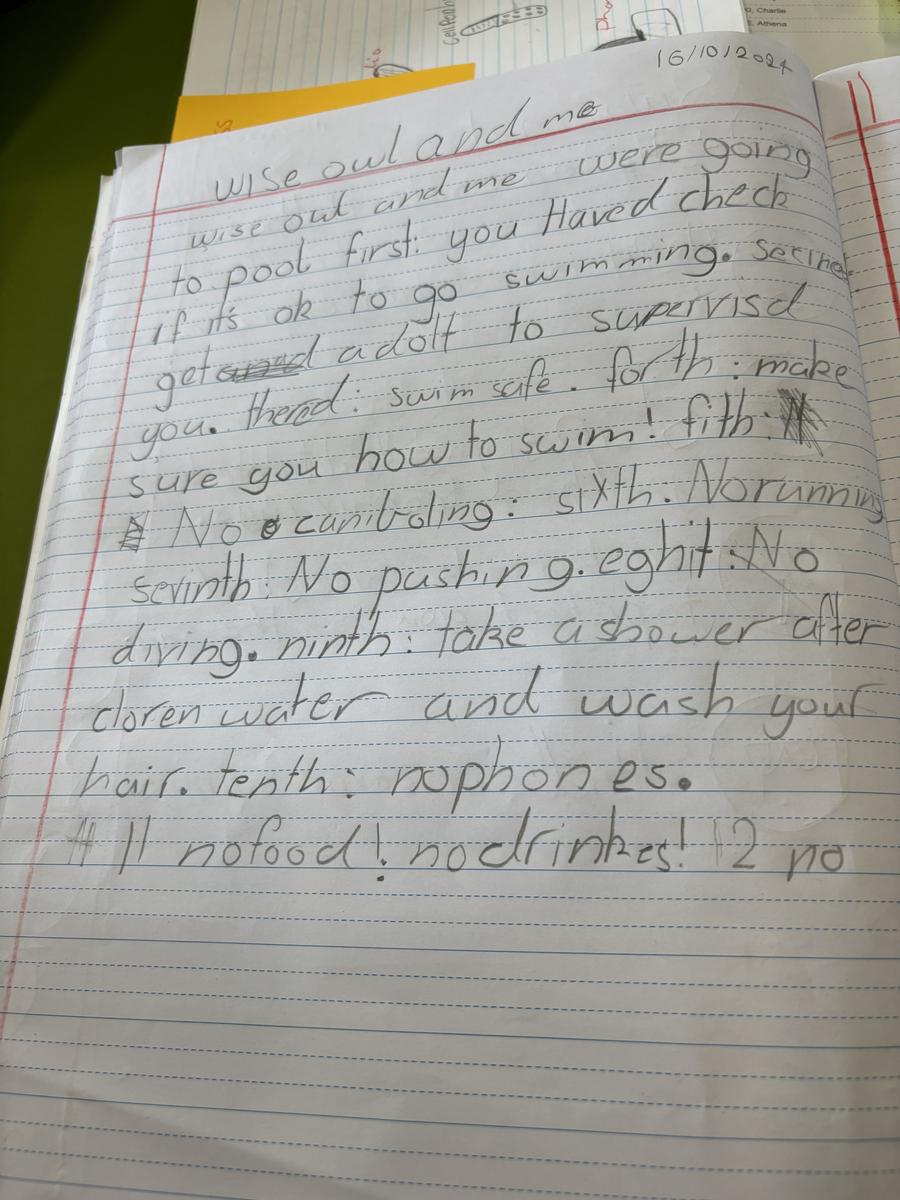 G, Charlie
Athena
16/10/2024
wise owl and me
wise owl and me were going
to pool first: you Haved check
if it's ok to go swimming. Secined
get adolt to supervisd
you. therd: swim safe. forth: make
sure you how to swim! fith:
No caniboling: sixth: No running
sevinth: No pushing. eghit: No
diving. ninth: take a shower after
cloren water and wash your
hair. tenth: no phones.
11 no food! no drinkes! 12 no